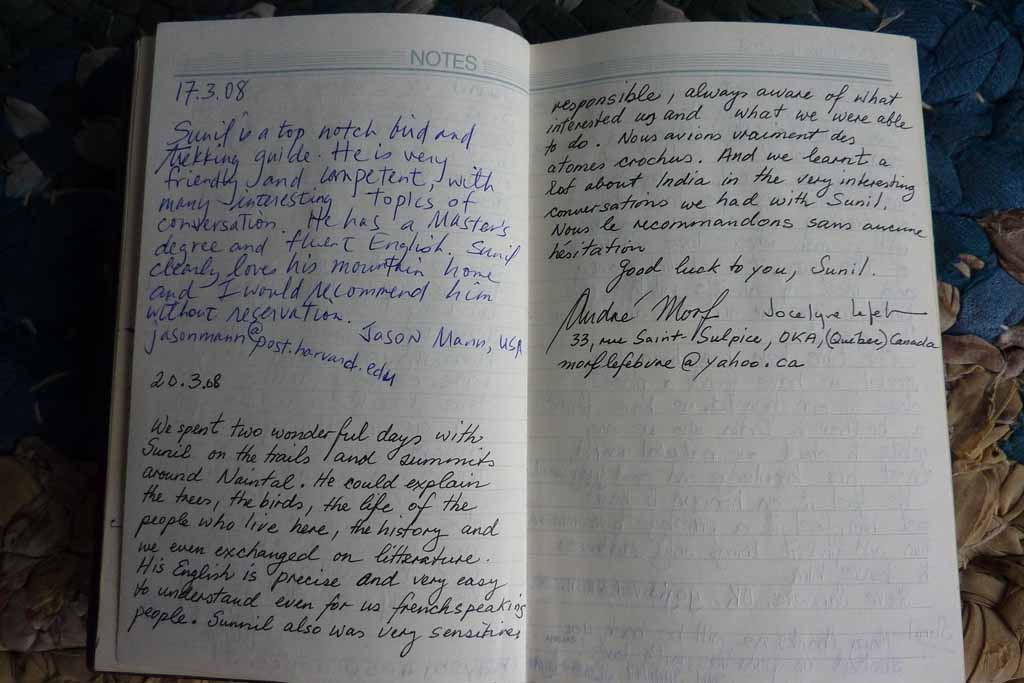 NOTES
17.3.08
Sunil is a top notch bird and
trekking guide. He is very
friendly and competent, with
many interesting topics of
conversation. He has a Master's
degree and fluent English. Sunil
clearly loves his mountain home
and I would recommend him
without reservation.
Jason Mann, USA
jasonmann@post.harvard.edu
20.3.08
We spent two wonderful days with
Sunil on the trails and summits
around Naintal. He could explain
the trees, the birds, the life of the
people who live here, the history and
we even exchanged on litterature.
His English is precise and very easy
to understand even for us frenchspeaking
people. Sunnil also was very sensitive,
responsible, always aware of what
interested us and what we were able
to do. Nous avions vraiment des
atomes crochus. And we learnt a
lot about India in the very interesting
conversations we had with Sunil.
Nous le recommandons sans aucune
hésitation
Good luck to you, Sunil.
André Morf Jocelyne
33, rue Saint-Sulpice, OKA, (Québec) Canada
morflefebvre@yahoo.ca